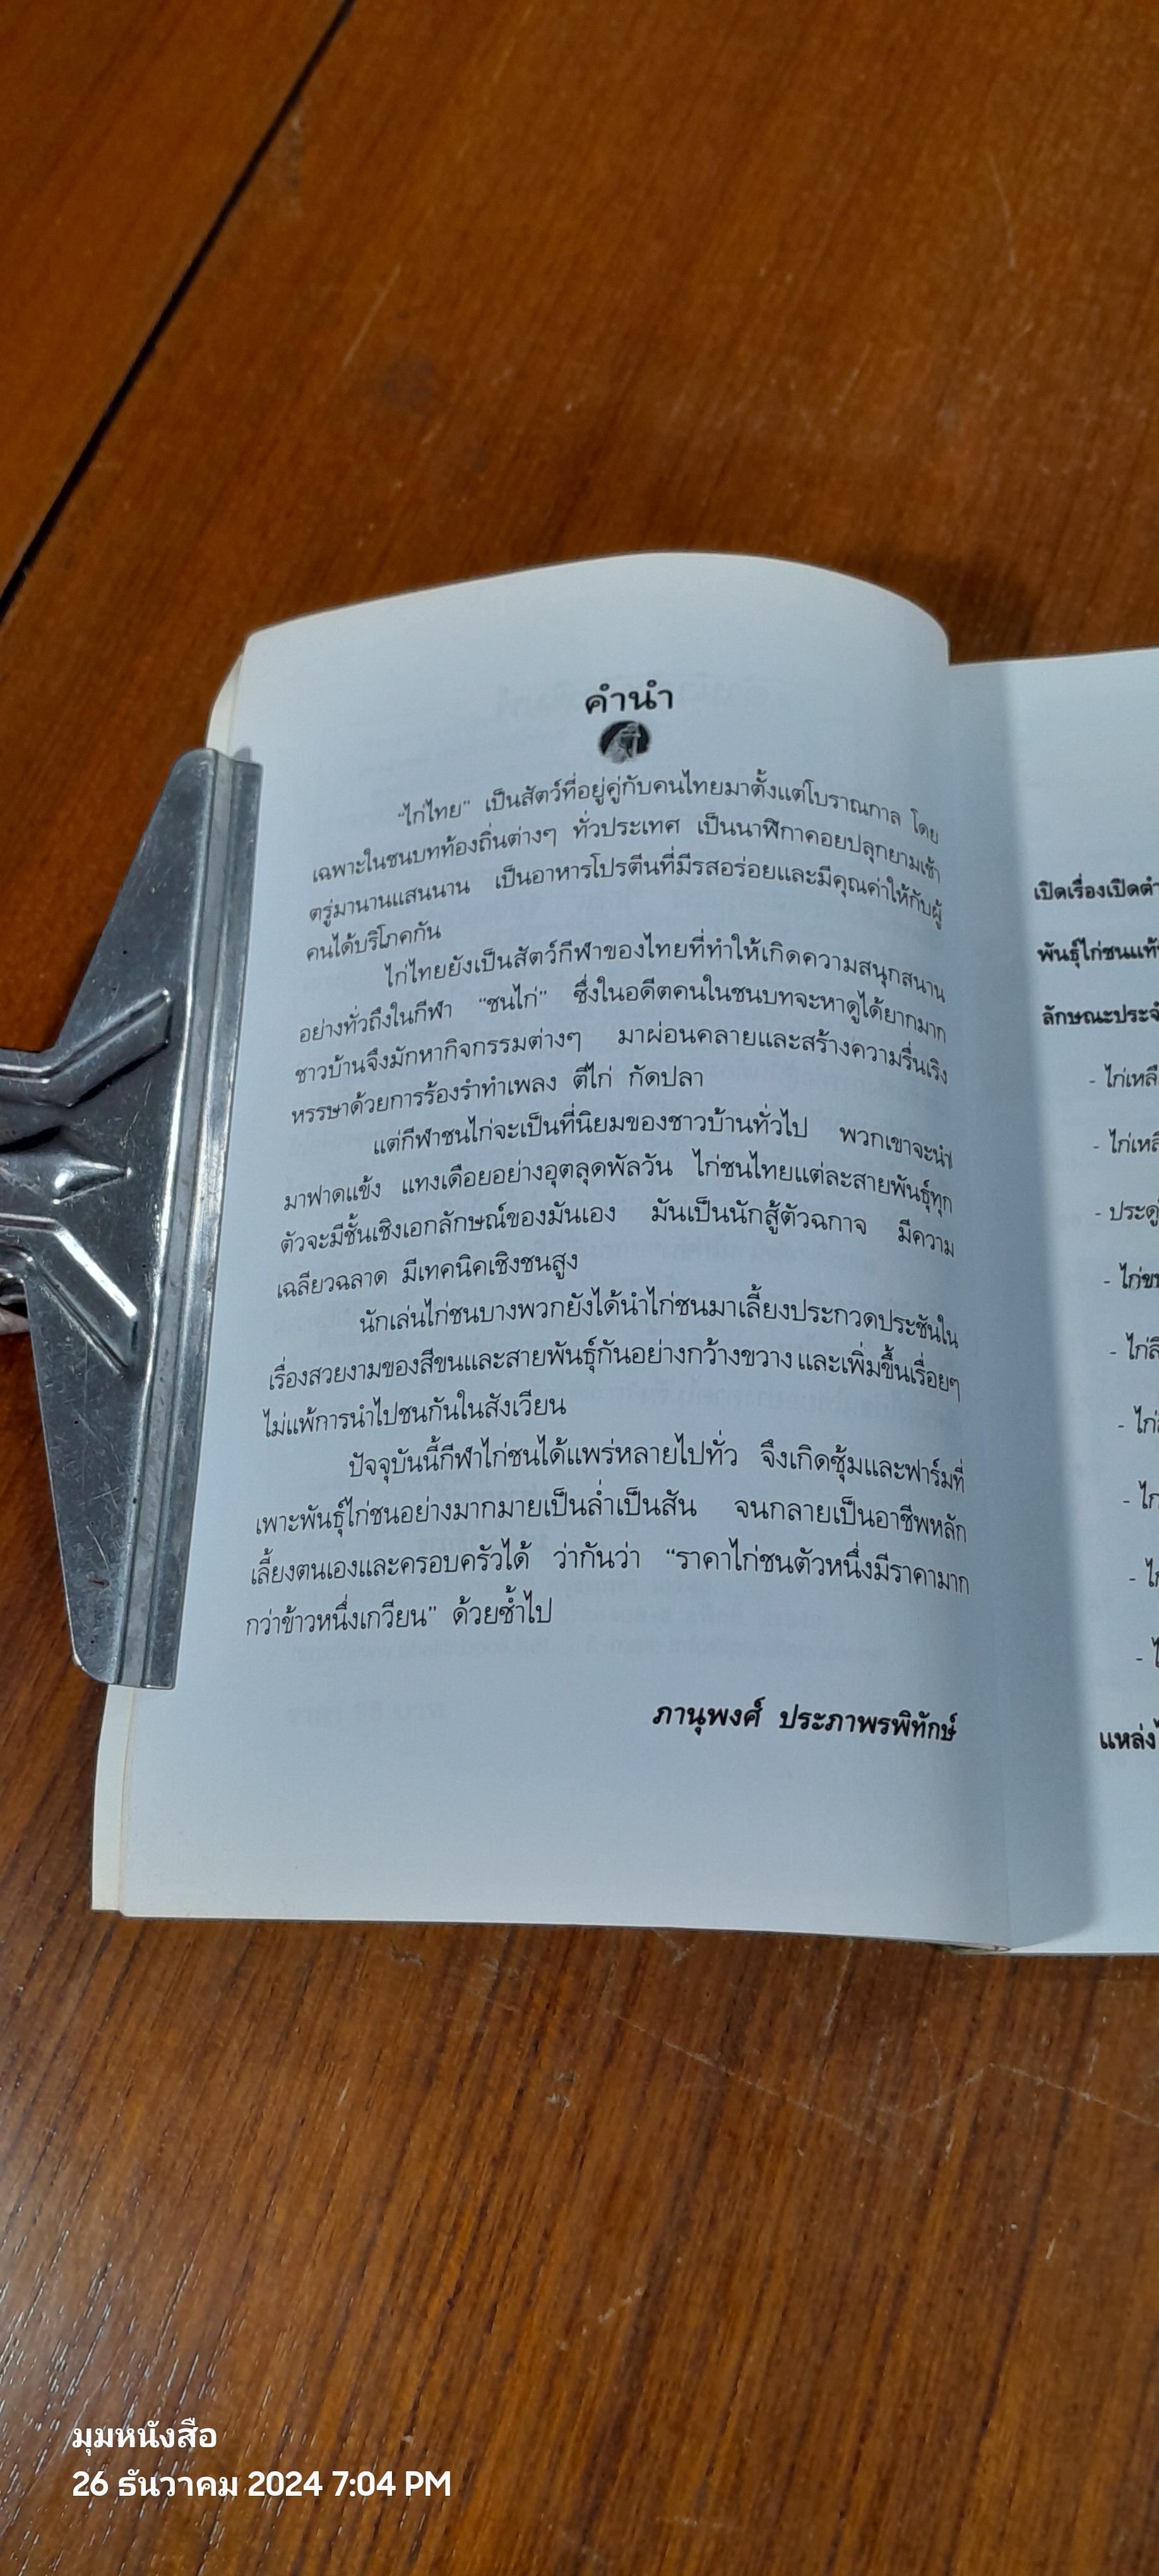 คำนำ
"ไก่ไทย" เป็นสัตว์ที่อยู่คู่กับคนไทยมาตั้งแต่โบราณกาล โดย
เฉพาะในชนบทท้องถิ่นต่างๆ ทั่วประเทศ เป็นนาฬิกาคอยปลุกยามเช้า
ตรู่มานานแสนนาน เป็นอาหารโปรตีนที่มีรสอร่อยและมีคุณค่าให้กับผู้
คนได้บริโภคกัน
ไก่ไทยยังเป็นสัตว์กีฬาของไทยที่ทำให้เกิดความสนุกสนาน
อย่างทั่วถึงในกีฬา "ชนไก่" ซึ่งในอดีตคนในชนบทจะหาดูได้ยากมาก
ชาวบ้านจึงมักหากิจกรรมต่างๆ มาผ่อนคลายและสร้างความรื่นเริง
หรรษาด้วยการร้องรำทำเพลง ตีไก่ กัดปลา
แต่กีฬาชนไก่จะเป็นที่นิยมของชาวบ้านทั่วไป พวกเขาจะนำ
มาฟาดแข้ง แทงเดือยอย่างอุตลุดพัลวัน ไก่ชนไทยแต่ละสายพันธุ์ทุก
ตัวจะมีชั้นเชิงเอกลักษณ์ของมันเอง มันเป็นนักสู้ตัวฉกาจ มีความ
เฉลียวฉลาด มีเทคนิคเชิงชนสูง
นักเล่นไก่ชนบางพวกยังได้นำไก่ชนมาเลี้ยงประกวดประชันใน
เรื่องสวยงามของสีขนและสายพันธุ์กันอย่างกว้างขวาง และเพิ่มขึ้นเรื่อยๆ
ไม่แพ้การนำไปชนกันในสังเวียน
ปัจจุบันนี้กีฬาไก่ชนได้แพร่หลายไปทั่ว จึงเกิดซุ้มและฟาร์มที่
เพาะพันธุ์ไก่ชนอย่างมากมายเป็นล่ำเป็นสัน จนกลายเป็นอาชีพหลัก
เลี้ยงตนเองและครอบครัวได้ ว่ากันว่า "ราคาไก่ชนตัวหนึ่งมีราคามาก
กว่าข้าวหนึ่งเกวียน" ด้วยซ้ำไป
ภานุพงศ์ ประภาพรพิทักษ์
เปิดเรื่องเปิดตำ
พันธุ์ไก่ชนแท้
ลักษณะประจำ
- ไก่เหลื
- ไก่เหลื
- ประดู่
- ไก่ข
- ไก่สี
- ไก่
- ไก
- ไก
- ไ
แหล่ง
มุมหนังสือ
26 ธันวาคม 2024 7:04 PM